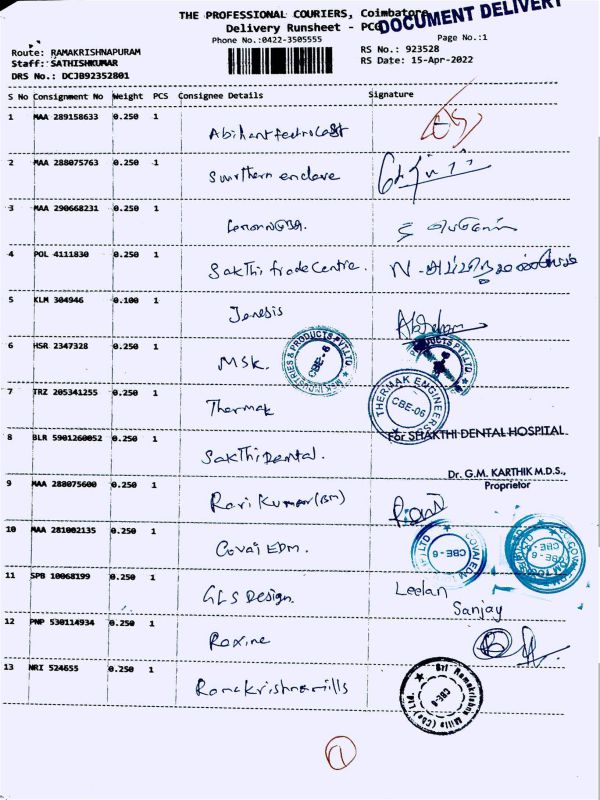 THE PROFESSIONAL COURIERS, Coimbatore
DOCUMENT DELIVERY
Delivery Runsheet - PCG
Phone No.:0422-3505555 Page No.:1
Route: RAMAKRISHNAPURAM RS No.: 923528
Staff: SATHISHKUMAR RS Date: 15-Apr-2022
DRS No.: DCJB92352801
S No Consignment No Weight PCS Consignee Details Signature
1 MAA 289158633 0.250 1
2 MAA 288075763 0.250 1 enclave
3 MAA 290668231 0.250 1
4 POL 4111830 0.250 1 SakThi tradeCentre.
5 KLM 304946 0.100 1 Jenesis
6 HSR 2347328 0.250 1 MSK. MSK INDUSTRIES & PRODUCTS PVT.LTD CBE-6 PRODUCTS PVT.LTD
7 TRZ 205341255 0.250 1 Thermak THERMAK ENGINEERS CBE-06
For SHAKTHI DENTAL HOSPITAL
8 BLR 5901260052 0.250 1 SakThi Dental.
Dr. G.M. KARTHIK M.D.S.,
Proprietor
9 MAA 288075600 0.250 1 Ravi Kumar (BM)
10 MAA 281002135 0.250 1 Covai EDM. COVAI EDM CBE-6
11 SPB 10068199 0.250 1 GLS Design. Leelan
Sanjay
12 PNP 530114934 0.250 1 Roxine
13 NRI 524655 0.250 1 Ramakrishna mills Sri Ramakrishna Mills (Cbe) CBE-6